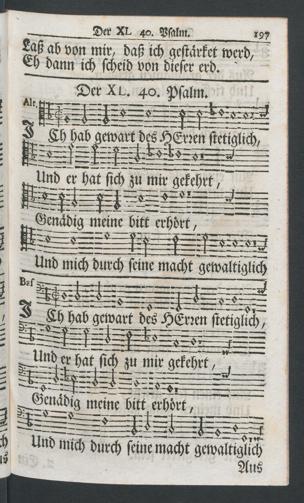 Der XL 40. Psalm. 197
Laß ab von mir, daß ich gestärket werd,
Eh dann ich scheid von dieser erd.
Der XL. 40. Psalm.
Alt.
ICh hab gewart des HErren stetiglich,
Und er hat sich zu mir gekehrt,
Genädig meine bitt erhört,
Und mich durch seine macht gewaltiglich
Bas
ICh hab gewart des HErren stetiglich,
Und er hat sich zu mir gekehrt,
Genädig meine bitt erhört,
Und mich durch seine macht gewaltiglich
Aus